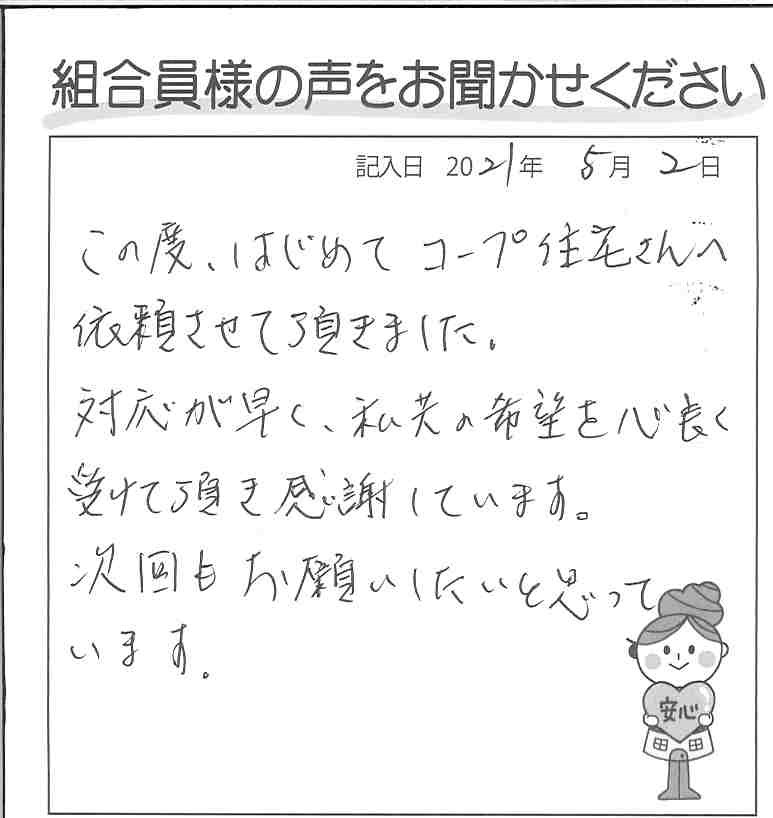 組合員様の声をお聞かせください
記入日 2021年 5月 2日
この度、はじめて コープ住宅さんへ
依頼させて頂きました。
対応が早く、私共の希望を心良く
受けて頂き感謝しています。
次回もお願いしたいと思って
います。
安心